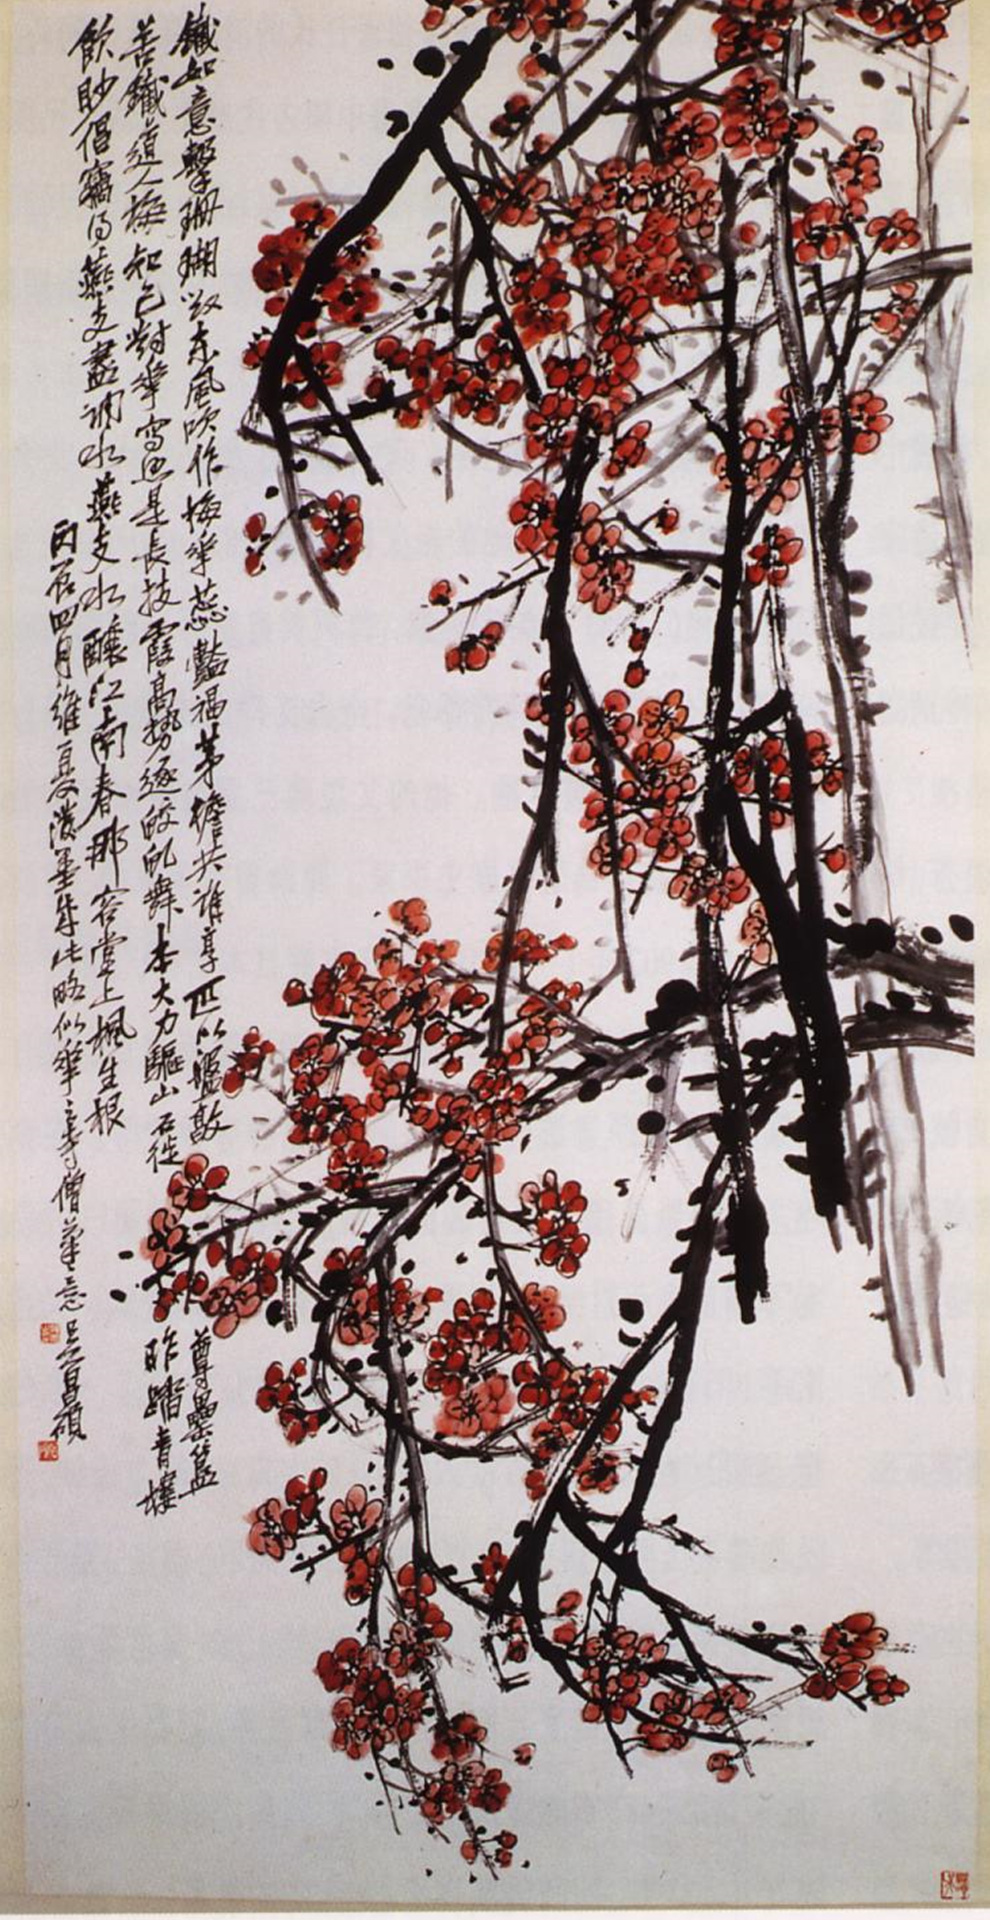 鐵如意擊珊瑚毀東風吹作梅華蕊豔福茅檐共誰享匹以盤敦尊罍簋
苦鐵道人梅知己對華寫照是長技霞高勢逐蛟虬舞本大力驅山石徙昨踏青樓
飲眇倡竊得燕支盡調水燕支水釀江南春那容堂上楓生根
丙辰四月維夏潑墨成此略似華之寺僧筆意吳昌碩